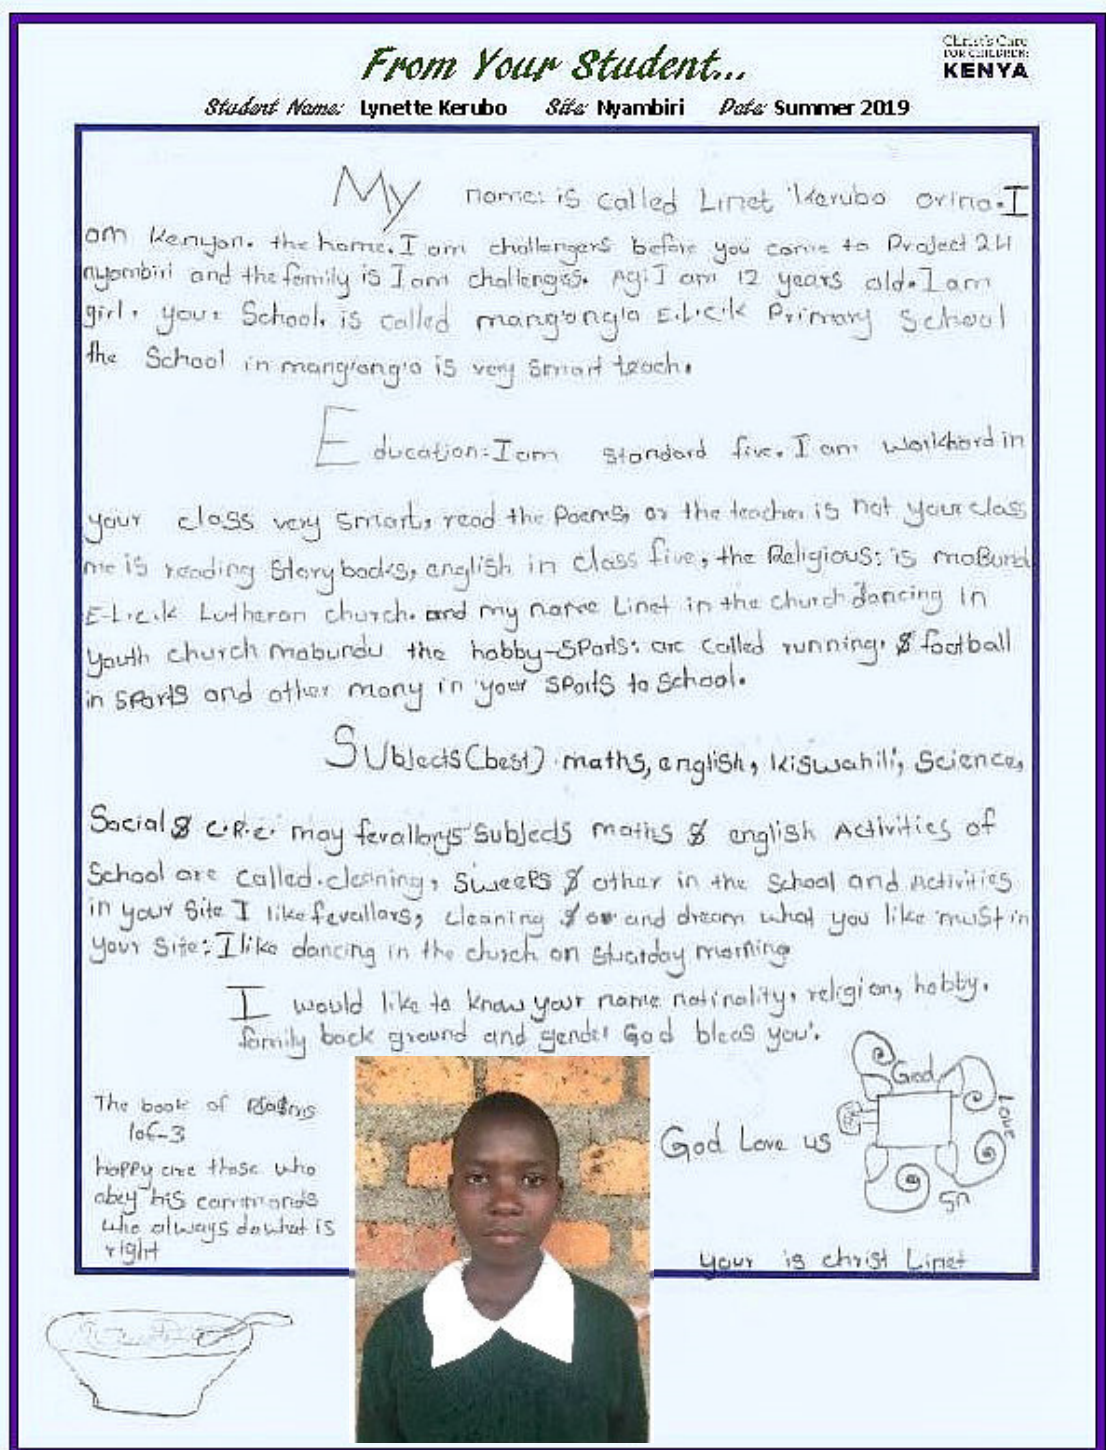 From Your Student...
Christ's Care
FOR CHILDREN:
KENYA
Student Name: Lynette Kerubo Site: Nyambiri Date: Summer 2019
My name: is called Linet Kerubo orina. I
am Kenyan. the home. I am challengers before you come to Project 24
nyambiri and the family is I am challenges. Ag: I am 12 years old. I am
girl, your School. is called mang'ong'o E.L.C.K Primary School
the School in mang'ong'o is very smart teach.
Education: I am standard five. I am workhard in
your class very smart, read the Poems, or the teacher is not your class
me is reading Story books, english in class five, the Religious: is moBund
E.L.C.K Lutheran church. and my name Linet in the church dancing in
Youth church mobundu the hobby-Sports: are called running. & football
in sports and other many in your sports to school.
SUbjects (best) maths, english, kiswahili, Science,
Social & C.R.E. may fevallorys Subjects maths & english Activities of
School are called. cleaning, Sweeps & other in the School and Activities
in your Site I like fevallors, cleaning & or and dream what you like must in
your Site: I like dancing in the church on stuarday morning
I would like to know your name natinality, religion, hobby.
family back ground and gender God bleas you.
The book of Psalms
106-3
happy are those who
obey his commands
who always do what is
right
God Love us
God
Love
us
your is christ Linet